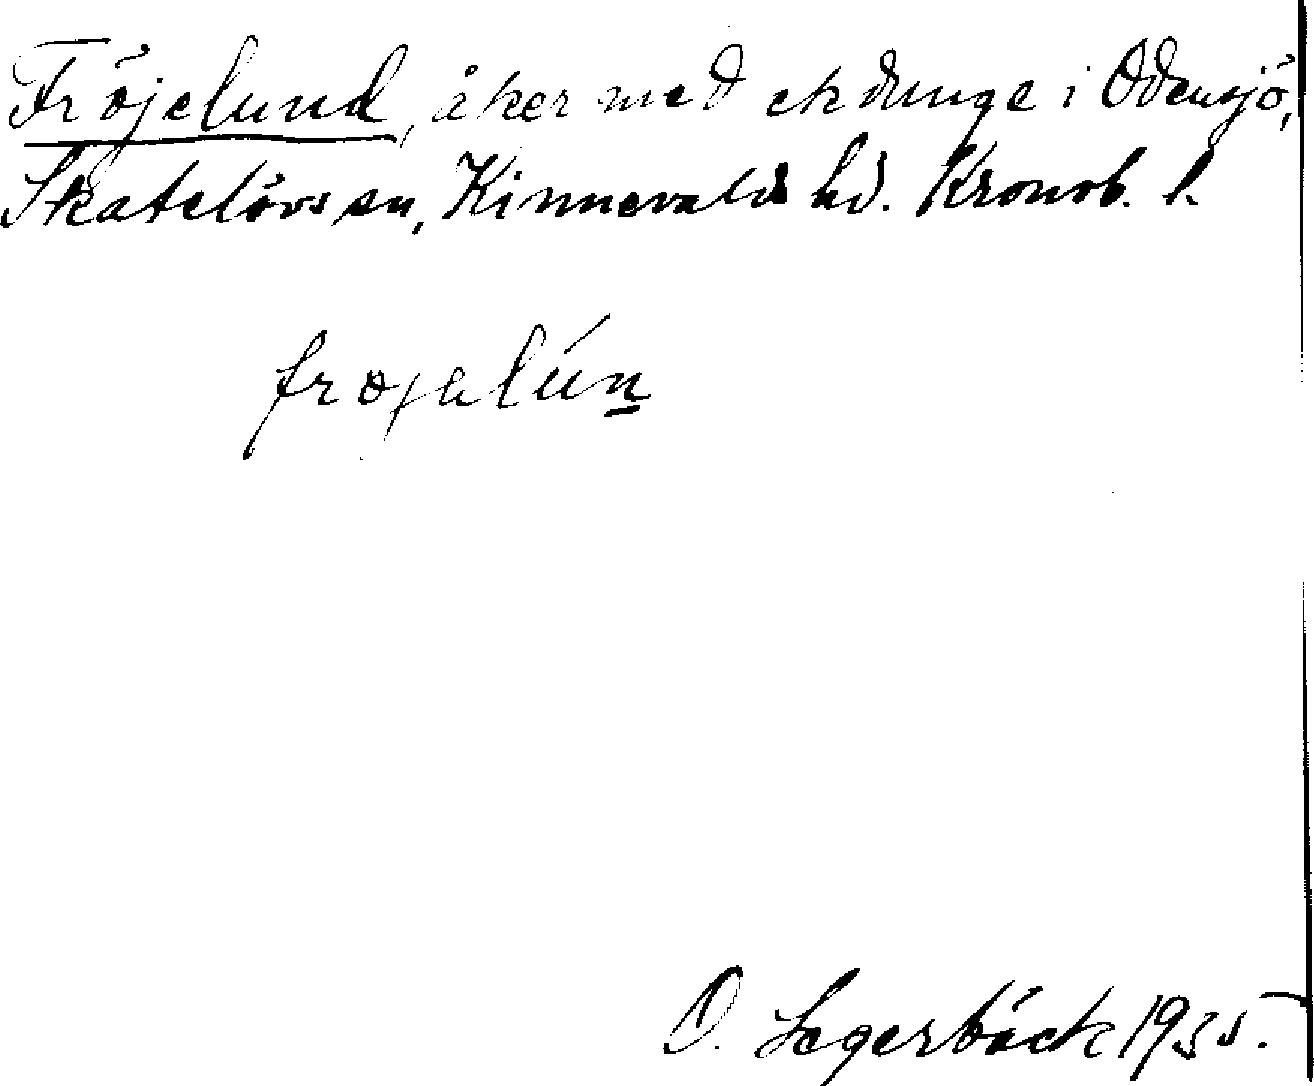 Fröjelund, åker med ekdunge i Odensjö,
Skatelövs sn, Kinnevalds hd. Kronob. l.
frøjalún
O. Segerbäck 1935.